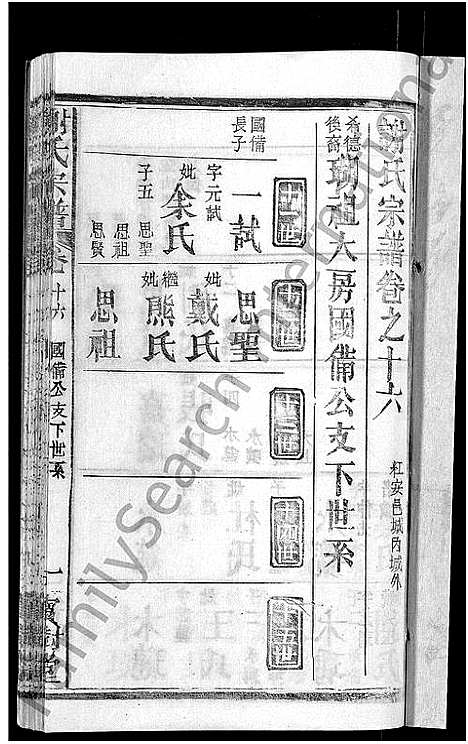 謝氏宗譜卷之十六
紅安邑城內城外
希德後裔
瑚祖大房國備公支下世系
十一世
十二世
十三世
十四世
十五世
國備長子
一試
字元試
妣
余氏
子五
思聖
思祖
思賢
思聖
妣
戴氏
繼妣
熊氏
思祖
謝氏宗譜
卷十六
國備公支下世系
一
寶樹堂
FamilySearch International